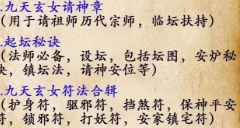 .九天玄女请神章
(用于请祖师历代宗师,临坛扶持)
.起坛秘诀
(法师必备,设坛,包括坛图,安炉秘
诀,镇坛法,请神安位等)
.九天玄女符法合辑
(护身符,驱邪符,挡煞符,保神平安
符,锁邪符,打妖符,安家镇宅符)